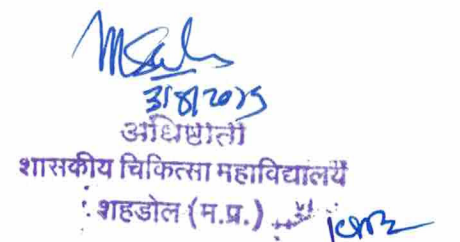 3/8/2025
अधिष्ठाता
शासकीय चिकित्सा महाविद्यालय
शहडोल (म.प्र.)